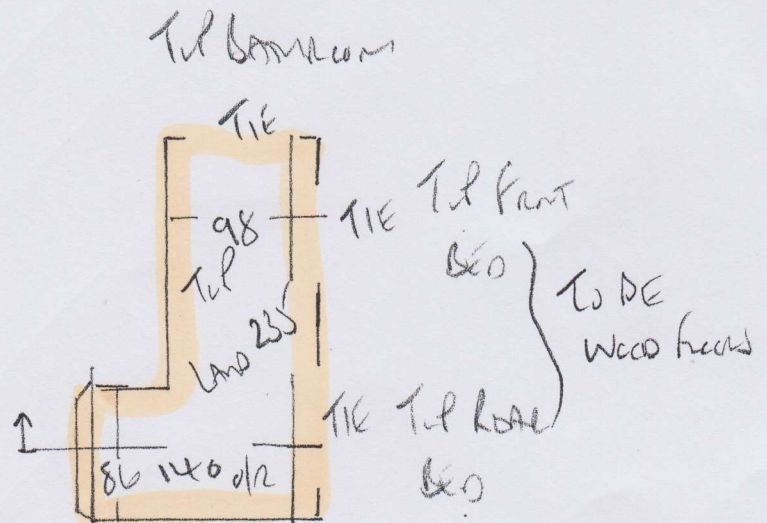 TOP BATHROOM
TIE
98
TIE TOP FRONT
BED
TOP
LAND 235
TO BE
WOOD FLOORS
TIE TOP REAR
BED
86 140 O/R